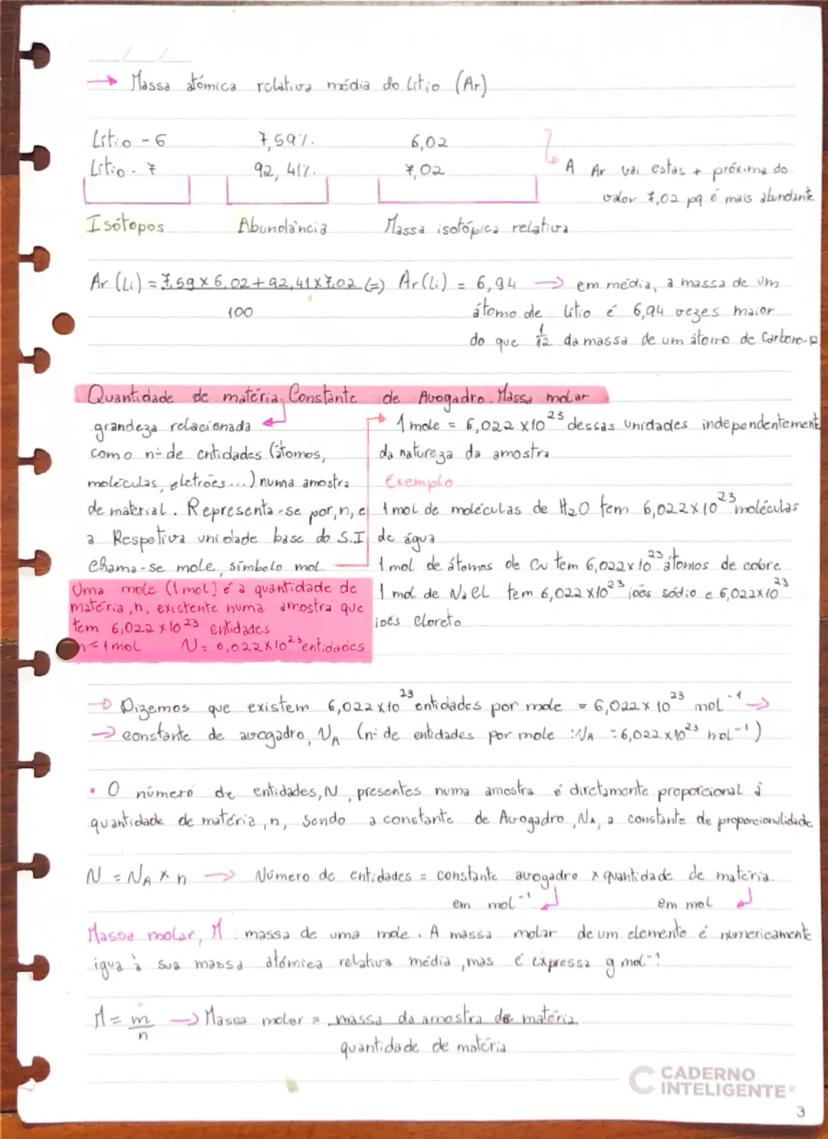 → Massa atómica relativa média do Lítio (Ar)
Lítio - 6 7,59% 6,02
Lítio - 7 92,41% 7,02
A Ar vai estas + próxima do
valor 7,02 pq é mais abundante
Isótopos Abundância Massa isotópica relativa
Ar (Li) = 7,59 x 6,02 + 92,41 x 7,02 (=) Ar (Li) = 6,94 → em média, a massa de um
100
átomo de lítio é 6,94 vezes maior
do que 1/12 da massa de um átomo de Carbono-12
Quantidade de matéria, Constante de Avogadro. Massa molar
grandeza relacionada
como nº de entidades (átomos,
moléculas, eletrões...) numa amostra
de material. Representa-se por, n, e
a Respetiva unidade base do S.I
chama-se mole, símbolo mol
Uma mole (1 mol) é a quantidade de
matéria, n, existente numa amostra que
tem 6,022 x 10²³ entidades
n = 1 mol N = 6,022 x 10²³ entidades
1 mole = 6,022 x 10²³ dessas unidades independentemente
da natureza da amostra
Exemplo
1 mol de moléculas de H₂O tem 6,022 x 10²³ moléculas
de água
1 mol de átomos de Cu tem 6,022 x 10²³ átomos de cobre
1 mol de NaCl tem 6,022 x 10²³ iões sódio e 6,022 x 10²³
iões cloreto
→ Dizemos que existem 6,022 x 10²³ entidades por mole = 6,022 x 10²³ mol⁻¹ →
→ constante de avogadro, NA (nº de entidades por mole : NA = 6,022 x 10²³ mol⁻¹)
• O número de entidades, N, presentes numa amostra é diretamente proporcional à
quantidade de matéria, n, sendo a constante de Avogadro, NA, a constante de proporcionalidade
N = NA x n → Número de entidades = constante avogadro x quantidade de matéria
em mol⁻¹ em mol
Massa molar, M : massa de uma mole. A massa molar de um elemento é numericamente
igua à sua massa atómica relativa média, mas é expressa g mol⁻¹.
M = m/n → Massa molar = massa da amostra de matéria
quantidade de matéria
CADERNO
INTELIGENTE®
3